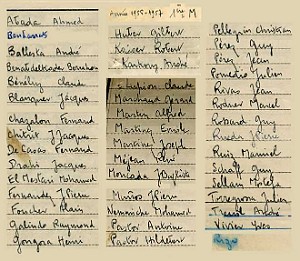 Abada Ahmed
Benhamou
Ballesta André
Benabdelkader Bouchan
Bénéliy Claude
Blanquer Jacques
Chazalon Fernand
Chitrit Jacques
De Casas Fernand
Drahi Jacques
El Mestari Mohamed
Fernandez Pierre
Foucher Alain
Galindo Raymond
Gongora Henri
Année 1956-1957 1ère M
Huber Gilbert
Kaiser Robert
Kankouy André
Lupion Claude
Marchand Gérard
Martin Alfred
Martinez Emile
Martinez Joseph
Méjean René
Moncada J Baptiste
Muños Pierre
Nemmiche Mohamed
Pastor Antoine
Pastor Hildevert
Pellegrin Christian
Pérez Guy
Pérez Jean
Pomedio Julien
Rivas Jean
Rodner Marcel
Rouard Guy
Rueda Pierre
Ruiz Manuel
Schaff Guy
Sellam Moïse
Torregrosa Julien
Treuil André
Vivier Yves